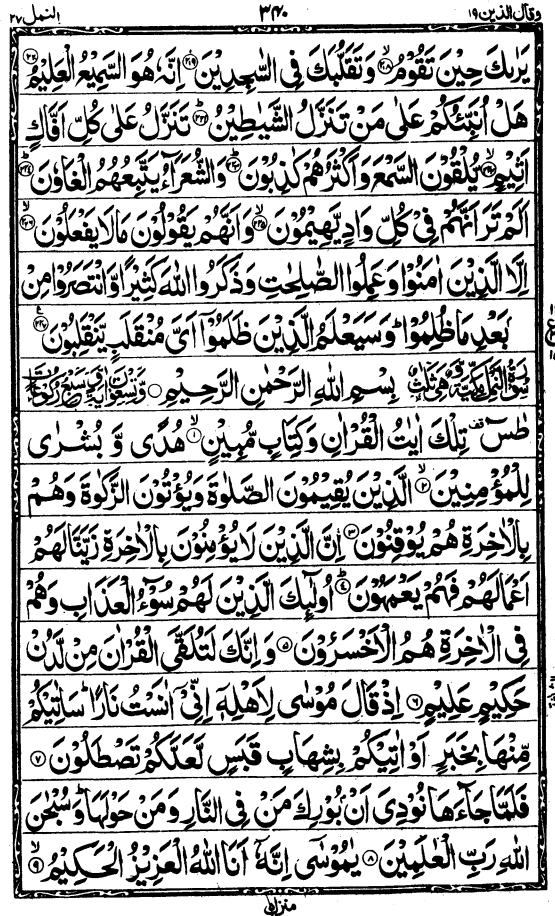 وقال الذين ١٩ ٣٤٠ النمل ٢٧
يَرٰىكَ حِيْنَ تَقُوْمُ ۙ﴿۲۱۸﴾ وَتَقَلُّبَكَ فِى السّٰجِدِيْنَ ﴿۲۱۹﴾ اِنَّهٗ هُوَ السَّمِيْعُ الْعَلِيْمُ ﴿۲۲۰﴾
هَلْ اُنَبِّئُكُمْ عَلٰى مَنْ تَنَزَّلُ الشَّيٰطِيْنُ ؕ﴿۲۲۱﴾ تَنَزَّلُ عَلٰى كُلِّ اَفَّاكٍ
اَثِيْمٍ ۙ﴿۲۲۲﴾ يُّلْقُوْنَ السَّمْعَ وَاَكْثَرُهُمْ كٰذِبُوْنَ ؕ﴿۲۲۳﴾ وَالشُّعَرَآءُ يَتَّبِعُهُمُ الْغَاوٗنَ ؕ﴿۲۲۴﴾
اَلَمْ تَرَ اَنَّهُمْ فِىْ كُلِّ وَادٍ يَّهِيْمُوْنَ ۙ﴿۲۲۵﴾ وَاَنَّهُمْ يَقُوْلُوْنَ مَا لَا يَفْعَلُوْنَ ۙ﴿۲۲۶﴾
اِلَّا الَّذِيْنَ اٰمَنُوْا وَعَمِلُوا الصّٰلِحٰتِ وَذَكَرُوا اللّٰهَ كَثِيْرًا وَّانْتَصَرُوْا مِنْ
بَعْدِ مَا ظُلِمُوْا ؕ وَسَيَعْلَمُ الَّذِيْنَ ظَلَمُوْۤا اَىَّ مُنْقَلَبٍ يَّنْقَلِبُوْنَ ﴿۲۲۷﴾
سورة النمل مكية وهى ثلث بِسْمِ اللّٰهِ الرَّحْمٰنِ الرَّحِيْمِ وتسعون اية وسبع ركوعات
طٰسٓ تِلْكَ اٰيٰتُ الْقُرْاٰنِ وَكِتَابٍ مُّبِيْنٍ ۙ﴿۱﴾ هُدًى وَّ بُشْرٰى
لِلْمُؤْمِنِيْنَ ۙ﴿۲﴾ الَّذِيْنَ يُقِيْمُوْنَ الصَّلٰوةَ وَيُؤْتُوْنَ الزَّكٰوةَ وَهُمْ
بِالْاٰخِرَةِ هُمْ يُوْقِنُوْنَ ﴿۳﴾ اِنَّ الَّذِيْنَ لَا يُؤْمِنُوْنَ بِالْاٰخِرَةِ زَيَّنَّا لَهُمْ
اَعْمَالَهُمْ فَهُمْ يَعْمَهُوْنَ ؕ﴿۴﴾ اُولٰٓئِكَ الَّذِيْنَ لَهُمْ سُوْٓءُ الْعَذَابِ وَهُمْ
فِى الْاٰخِرَةِ هُمُ الْاَخْسَرُوْنَ ﴿۵﴾ وَاِنَّكَ لَتُلَقَّى الْقُرْاٰنَ مِنْ لَّدُنْ
حَكِيْمٍ عَلِيْمٍ ﴿۶﴾ اِذْ قَالَ مُوْسٰى لِاَهْلِهٖۤ اِنِّىْۤ اٰنَسْتُ نَارًا ؕ سَاٰتِيْكُمْ
مِّنْهَا بِخَبَرٍ اَوْ اٰتِيْكُمْ بِشِهَابٍ قَبَسٍ لَّعَلَّكُمْ تَصْطَلُوْنَ ﴿۷﴾
فَلَمَّا جَآءَهَا نُوْدِىَ اَنْۢ بُوْرِكَ مَنْ فِى النَّارِ وَمَنْ حَوْلَهَا ؕ وَسُبْحٰنَ
اللّٰهِ رَبِّ الْعٰلَمِيْنَ ﴿۸﴾ يٰمُوْسٰۤى اِنَّهٗۤ اَنَا اللّٰهُ الْعَزِيْزُ الْحَكِيْمُ ۙ﴿۹﴾
منزل ٥